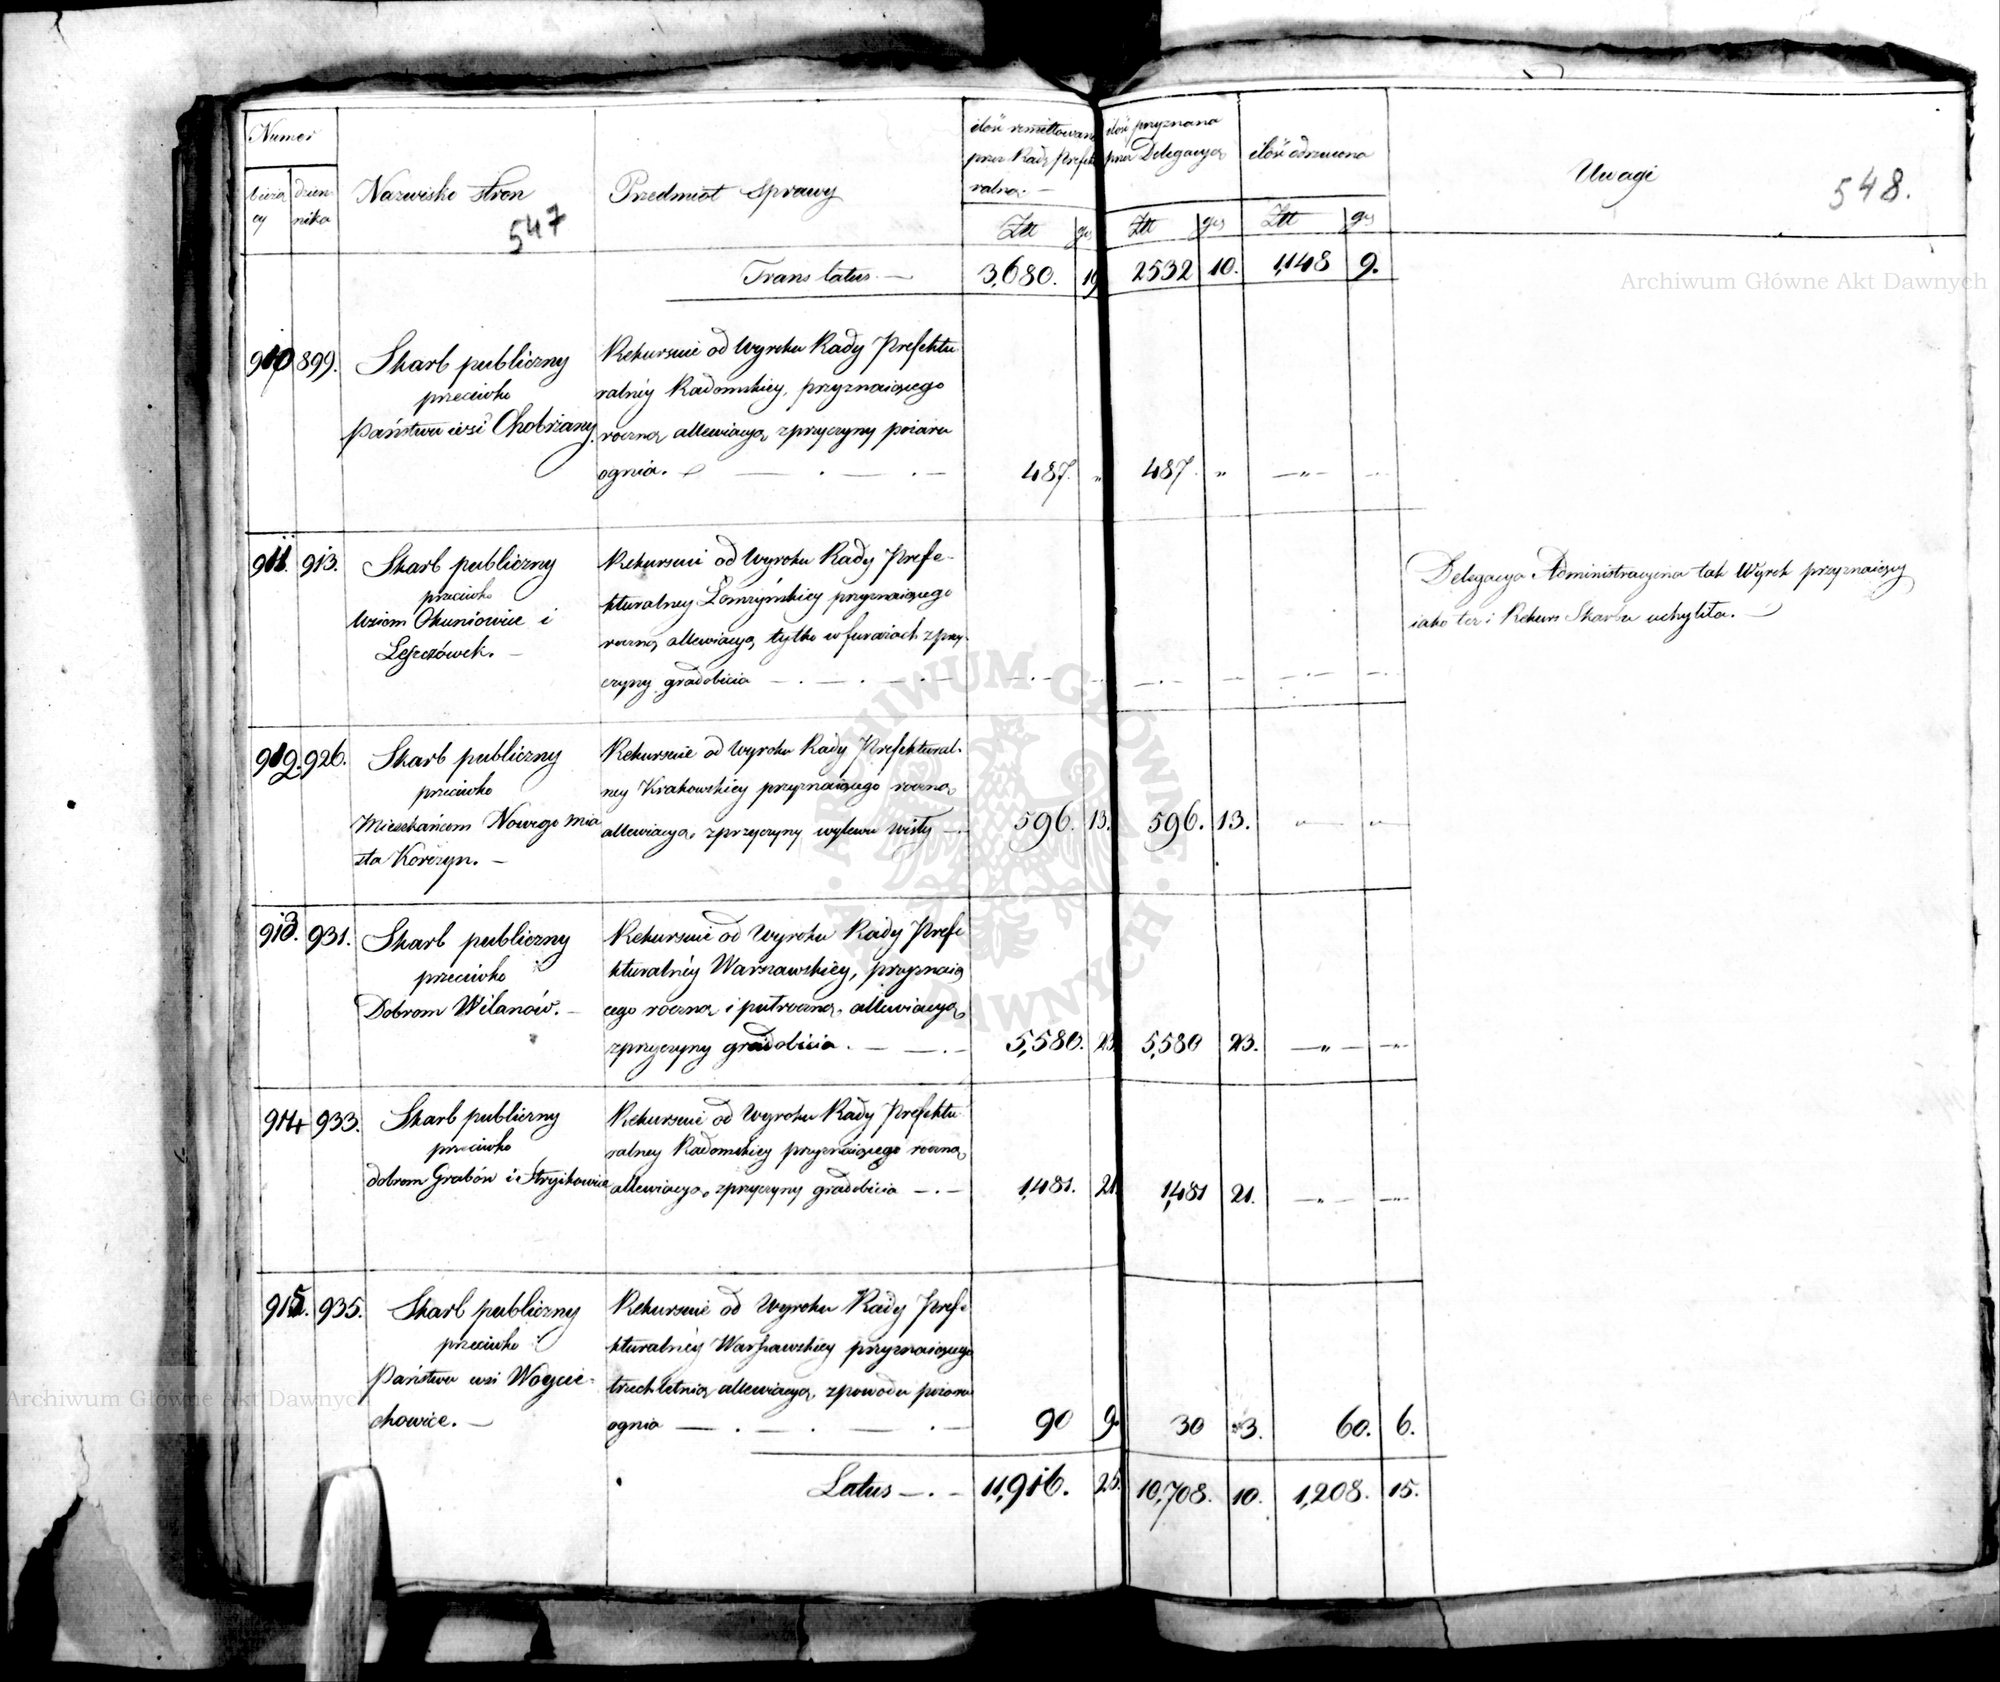 Numer
bieżą
cy
dzien-
nika
Nazwisko Stron
547
Przedmiot Sprawy
ilość remittowana
przez Radę Prefek
ralną. —
Złt gr
ilość przyznana
przez Delegacyą
Złt gr
ilość odrzucona
Złt gr
Uwagi
548.
Archiwum Główne Akt Dawnych
Translatus — 3,680. 19 2532 10. 1,148 9.
910 899. Skarb publiczny
przeciwko
Państwu wsi Chobrzany.
Rekursuie od Wyroku Rady Prefektu
ralnéy Radomskiey, przyznaiącego
roczną allewiacyą z przyczyny pożaru
ognia. — . — . —
487. " 487. " — " —
911. 913. Skarb publiczny
przeciwko
Wsiom Okuniowice i
Leszczówek. —
Rekursuie od Wyroku Rady Prefe-
kturalney Łomżyńskiey przyznaiącego
roczną allewiacyą tylko w furażach z przy-
czyny gradobicia — . — . —
Delegacya Administracyina tak Wyrok przyznaiący
iako też i Rekurs Skarbu uchyliła. —
912. 926. Skarb publiczny
przeciwko
Mieszkańcom Nowego Mia
sta Korczyn. —
Rekursuie od Wyroku Rady Prefektural-
ney Krakowskiey przyznaiącego roczną
allewiacyą, z przyczyny wylewu Wisły —
596. 13. 596. 13. " — "
913. 931. Skarb publiczny
przeciwko
Dobrom Wilanów. —
Rekursuie od Wyroku Rady Prefe
kturalnéy Warszawskiéy, przyznaią
cego roczną i półroczną allewiacyą,
z przyczyny gradobicia. — — . —
5,580. 23. 5,580 23. — " — — " —
914 933. Skarb publiczny
przeciwko
dobrom Grabów i Stryikowice
Rekursuie od Wyroku Rady Prefektu
ralney Radomskiey przyznaiącego roczną
allewiacyą, z przyczyny gradobicia — . —
1,481. 21. 1,481 21. — " — — " —
915. 935. Skarb publiczny
przeciwko
Państwu wsi Woycie-
chowice. —
Rekursuie od Wyroku Rady Prefe
kturalnéy Warszawskiey przyznaiącego
trzechletnią allewiacyą, z powodu pożaru
ognia — . — . — . —
90 9. 30 3. 60. 6.
Latus — . — 11,916. 25. 10,708. 10. 1,208. 15.
ARCHIWUM GŁÓWNE AKT DAWNYCH
Archiwum Główne Akt Dawnych